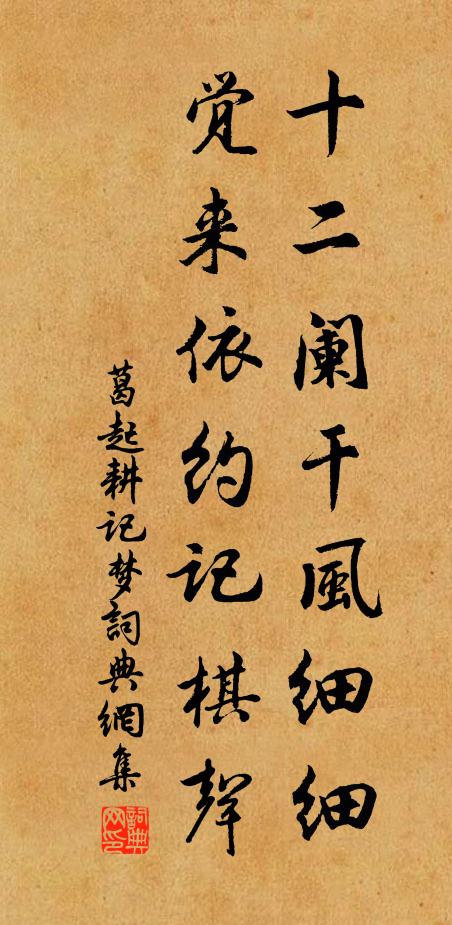 十二阑干風细细
覚来依约记棋聲
葛起耕记梦詞典網集
詞典网印